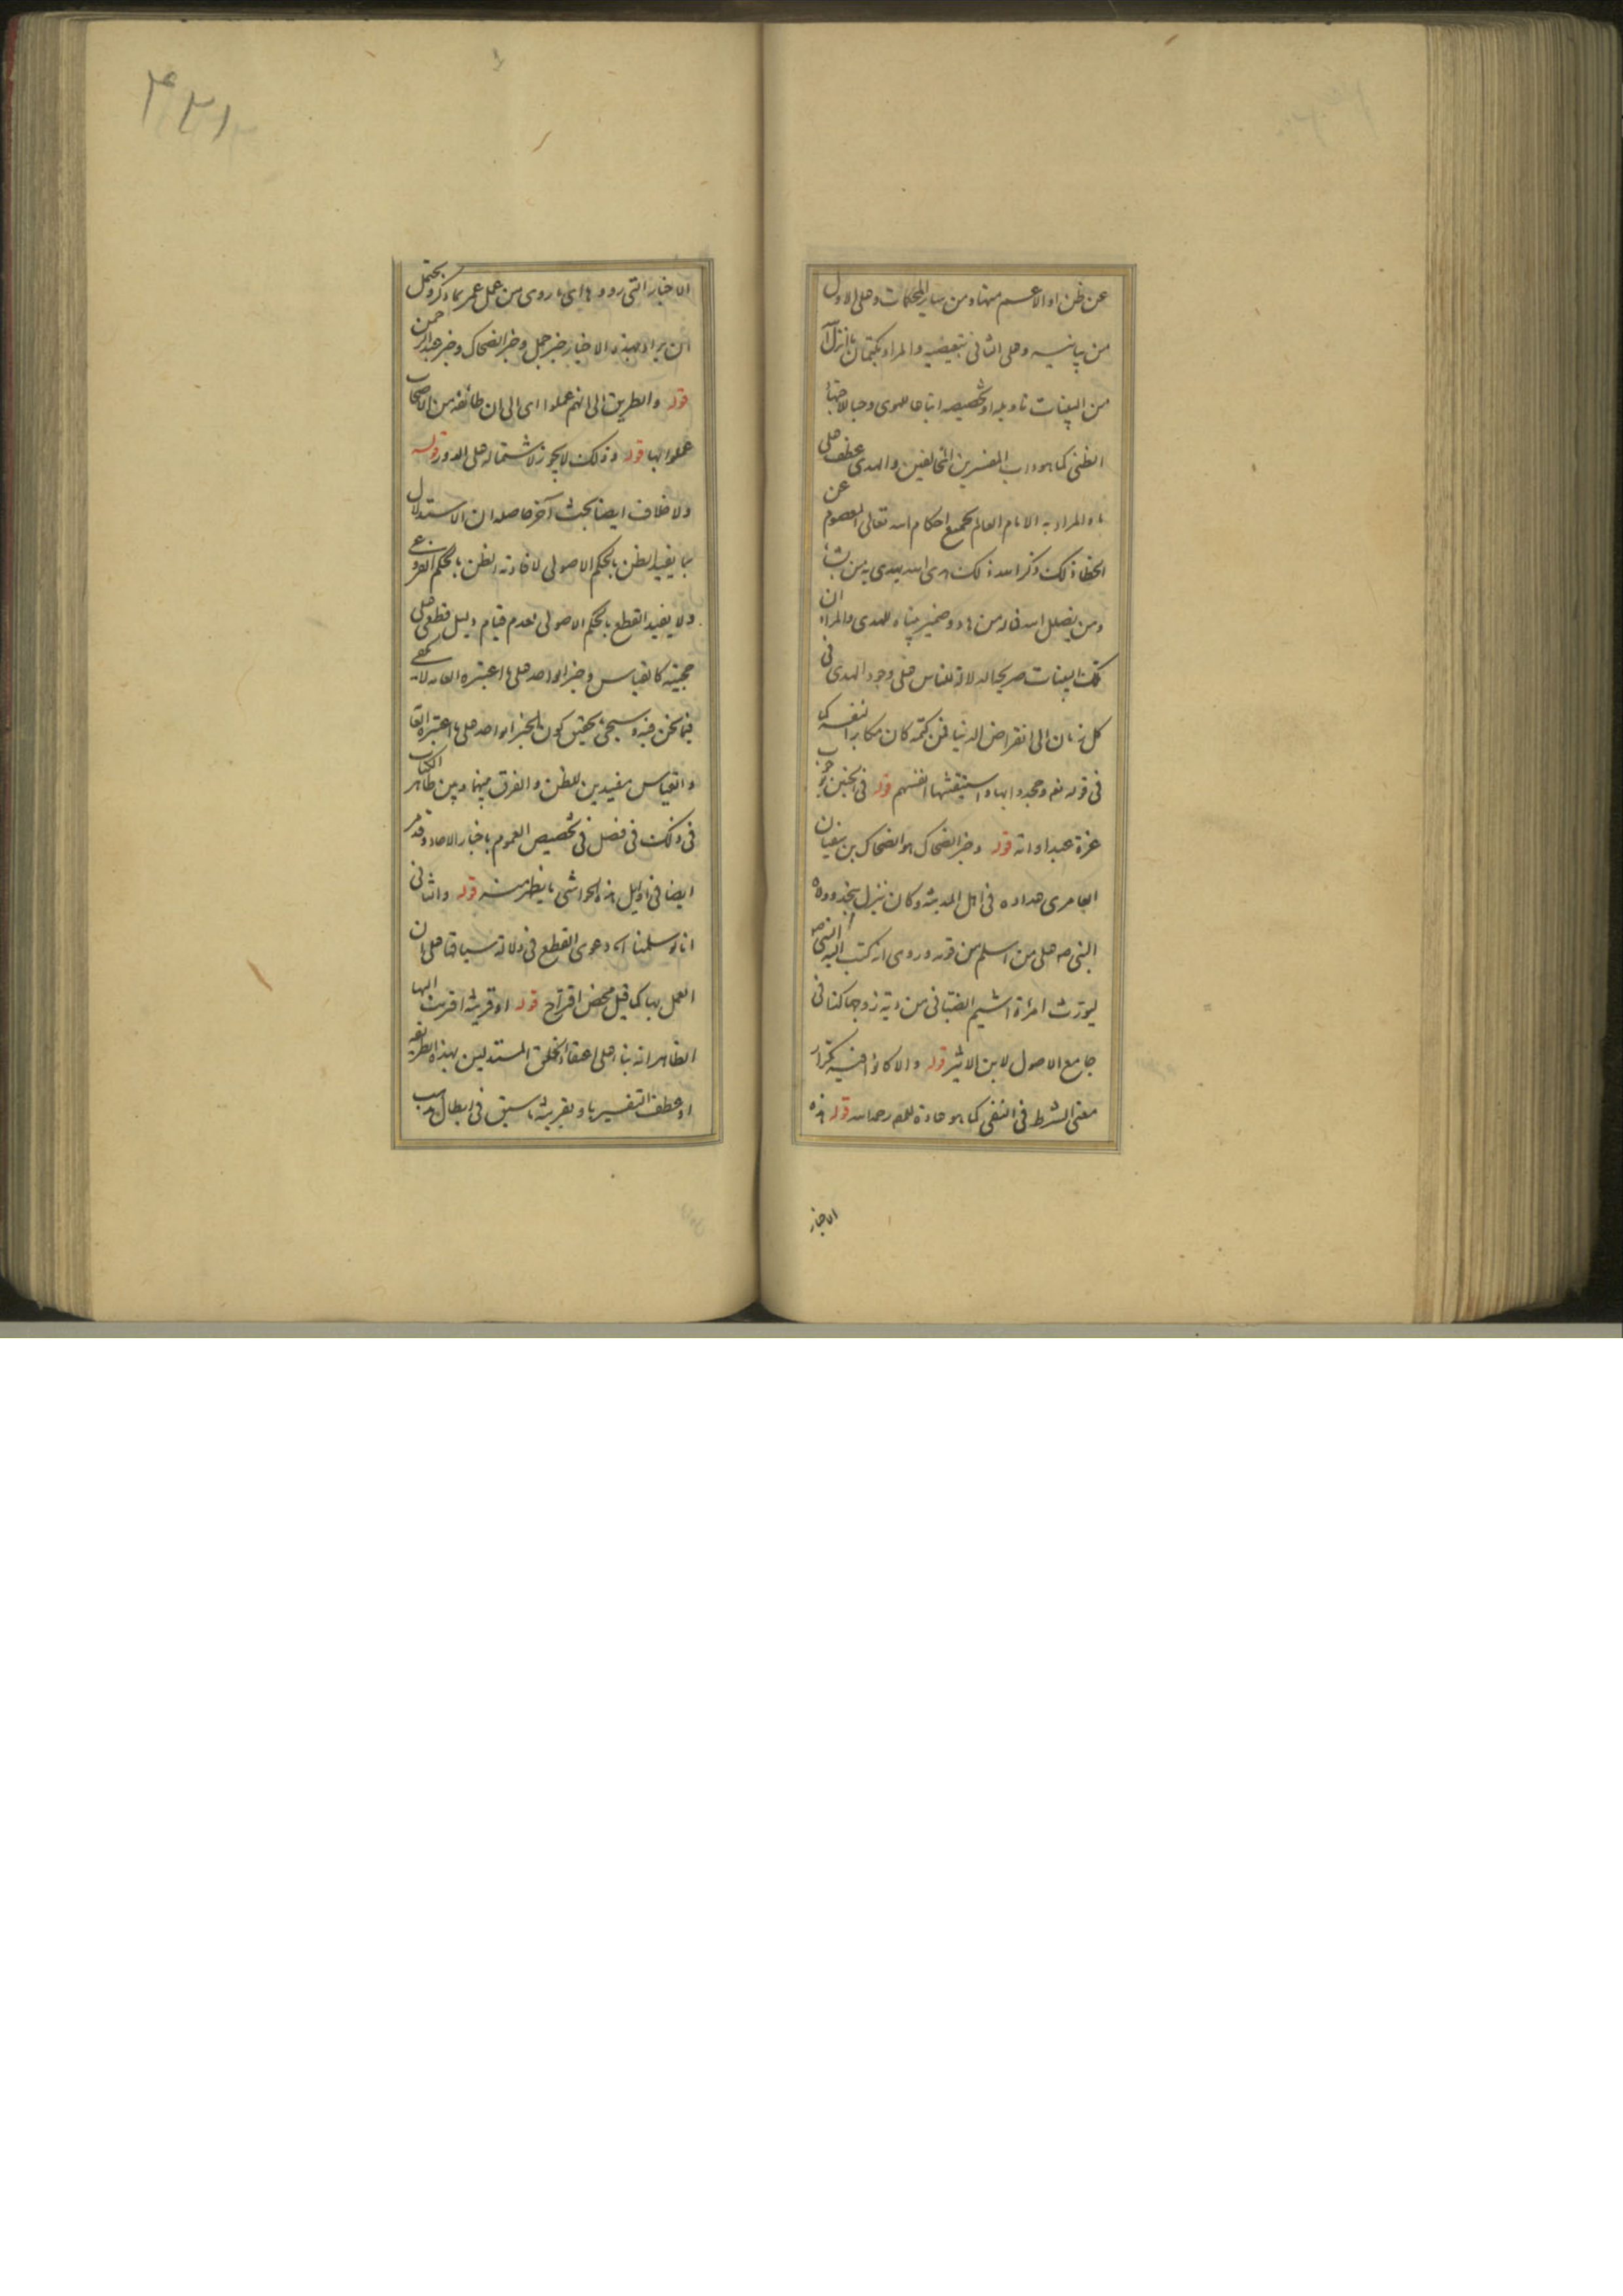 عن ظن او الاعم منها و من ساير المحكمات و على الاول
من بيانيه و على الثانى تبعيضيه و المراد بكتمان ما انزل الله
من البينات تاويله او تخصيصه اتباعا للهوى و حبا للاجتهاد
الظنى كما هو داب المفسرين المخالفين و الهدى عطف على
ما و المراد به الامام العالم بجميع احكام الله تعالى المعصوم عن
الخطاء ذلك و ذكر الله ذلك هدى الله يهدى به من يشاء
و من يضلل الله فما له من هاد و ضمير بيناه للهدى و المراد ان
تلك البينات صريحة الدلالة للناس على وجود الهدى فى
كل زمان الى انقراض الدنيا فمن كتمه كان مكابرا لنفسه كما
فى قوله تعالى و جحدوا بها و استيقنتها انفسهم قوله فى الجنين بوجوب
غرة عبد او امة قوله و خبر الضحاك هو الضحاك بن سفيان
العامرى عداده فى اهل المدينة و كان ينزل بنجد و ولاه
النبى ص على من اسلم من قومه و روى انه كتب اليه النبى ص ان
ليورث امرأة اشيم الضبابى من دية زوجها كذا فى
جامع الاصول لابن الاثير قوله و الا كانوا فيه تكرار
معنى الشرط فى النفى كما هو عادة المصنف رحمه الله قوله هذه
الاخبار
٤٢١
الاخبار التى رووها اى ما روى من عمل عمر بما ذكر و يحتمل
ان يراد بهذه الاخبار خبر حمل و خبر الضحاك و خبر عبد الرحمن
قوله و الطريق الى انهم عملوا اى الى ان طائفة من الاصحاب
عملوا بها قوله و ذلك لا يجوز لاشتماله على الدور قوله
و لا خلاف ايضا بحث آخر حاصله ان الاستدلال
بما يفيد الظن بالحكم الاصولى لافادته الظن بالحكم الفروعى
و لا يفيد القطع بالحكم الاصولى لعدم قيام دليل قطعى على
حجيته كالقياس و خبر الواحد على ما اعتبره العامة لا يكفى
فيما نحن فيه و سيجئ تحقيق كون الخبر الواحد على ما اعتبره العامة
و القياس مفيدين للظن و الفرق بينهما و بين ظاهر الكتاب
فى ذلك فى فصل فى تخصيص العموم باخبار الاحاد و قد مر
ايضا فى اوايل هذه الحواشى ما يظهر منه قوله و الثانى
انا لو سلمنا اى دعوى القطع فى دلالة سياقتها على ان
العمل بها كما قيل محض اقتراح قوله او قرينة اقترنت اليها
الظاهر انه بناء على اعتقاد الخلق المستدلين بهذه الطريقة
او عطف التفسير باو بقرينة ما سبق فى ابطال مذهب